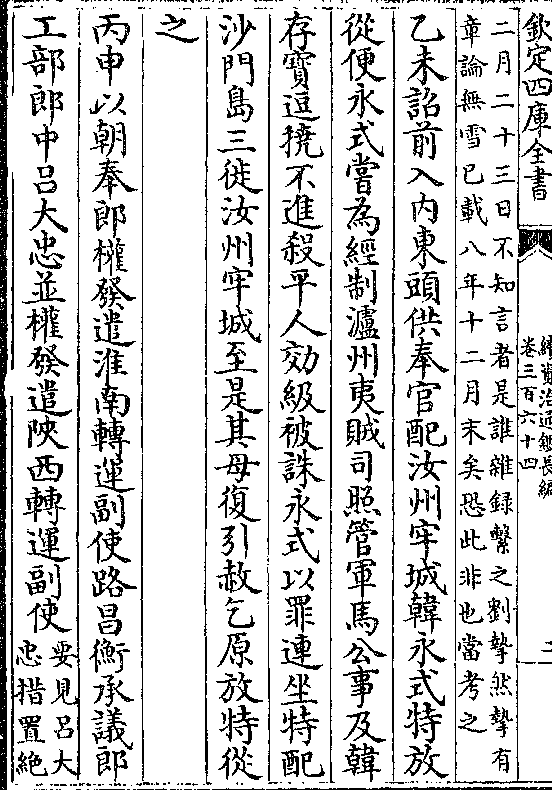 欽定四庫全書
續資治通鑑長編
卷三百六十四
二
二月二十三日不知言者是誰雜録繫之劉摯然摯有
章論無雪已載八年十二月末矣恐此非也當考之
乙未詔前入内東頭供奉官配汝州牢城韓永式特放
從便永式嘗為經制瀘州夷賊司照管軍馬公事及韓
存寶逗撓不進殺平人効級被誅永式以罪連坐特配
沙門島三徙汝州牢城至是其母復引赦乞原放特從
之
丙申以朝奉郎權發遣淮南轉運副使路昌衡承議郎
工部郎中吕大忠並權發遣陜西轉運副使
要見吕大
忠措置絶